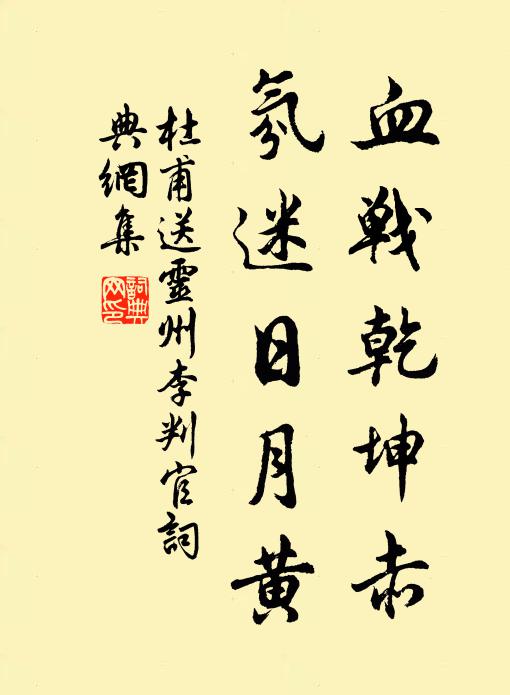 血戦乾坤赤
氛迷日月黄
杜甫送靈州李判官詞
典網集
詞典
网印